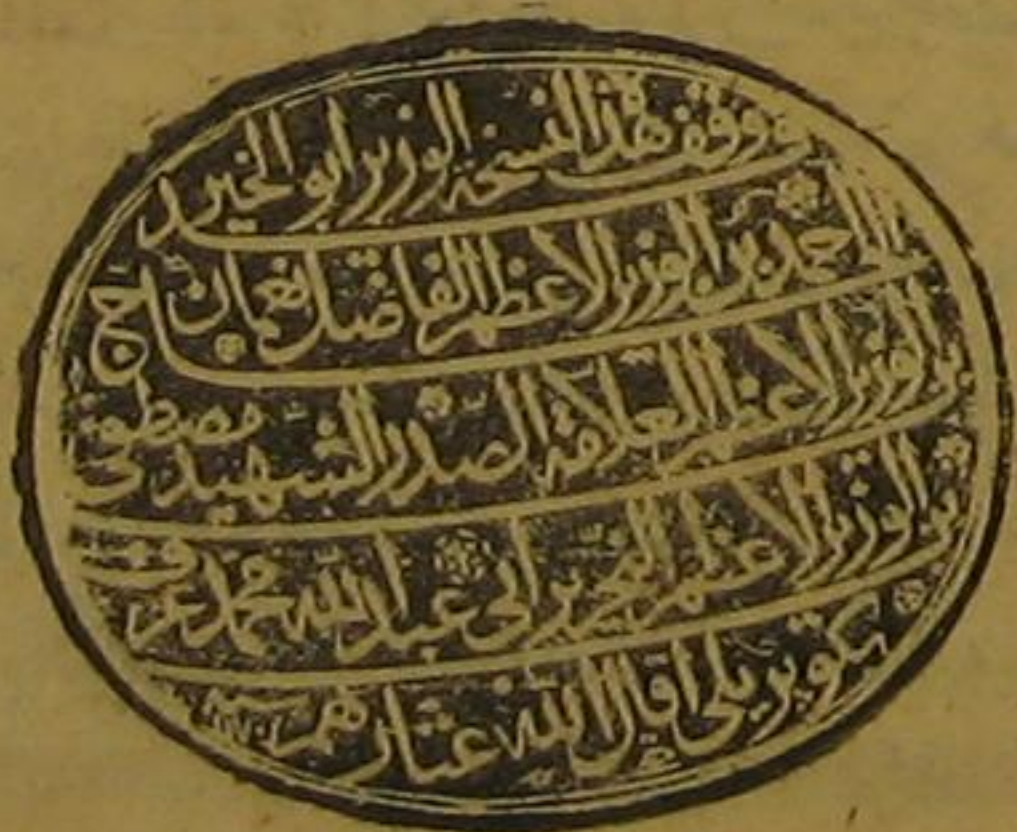 وقف هذه النسخة الوزير ابو الخير
الحاج احمد بن الوزير الاعظم الفاضل نعمان
بن الوزير الاعظم العلامة الصدر الشهيد مصطفى
بن الوزير الاعظم النحرير ابي عبد الله محمد عرف
بكوپريلى اقال الله عثارهم